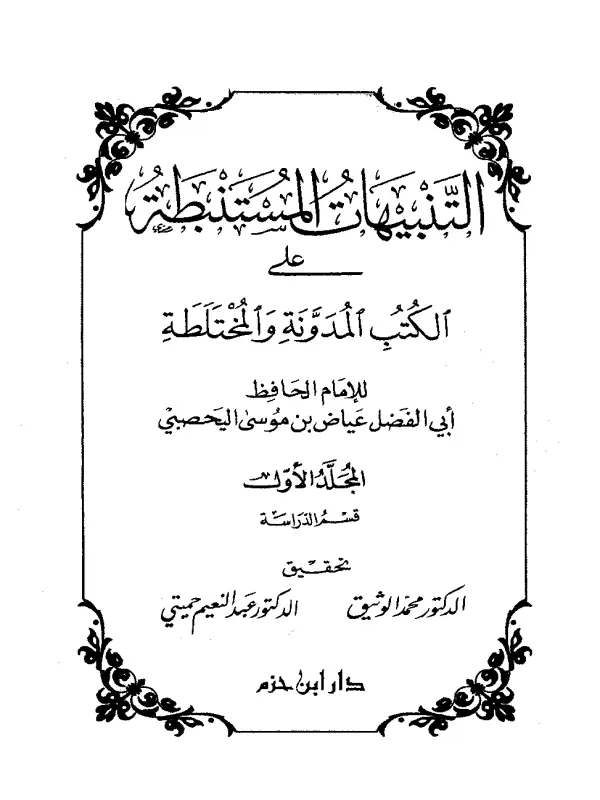 التَّنْبِيهَاتُ المُسْتَنْبَطَةُ
على
الكُتُبِ المُدَوَّنَةِ وَالمُخْتَلَطَةِ
للإمَام الحَافِظ
أبي الفَضل عيَاض بن مُوسىٰ اليَحصبيّ
المُجَلَّدُ الأوّل
قسمُ الدّرَاسَة
تحقيق
الدكتور محمد الوثيق الدكتور عبد النعيم حميتي
دار ابن حزم